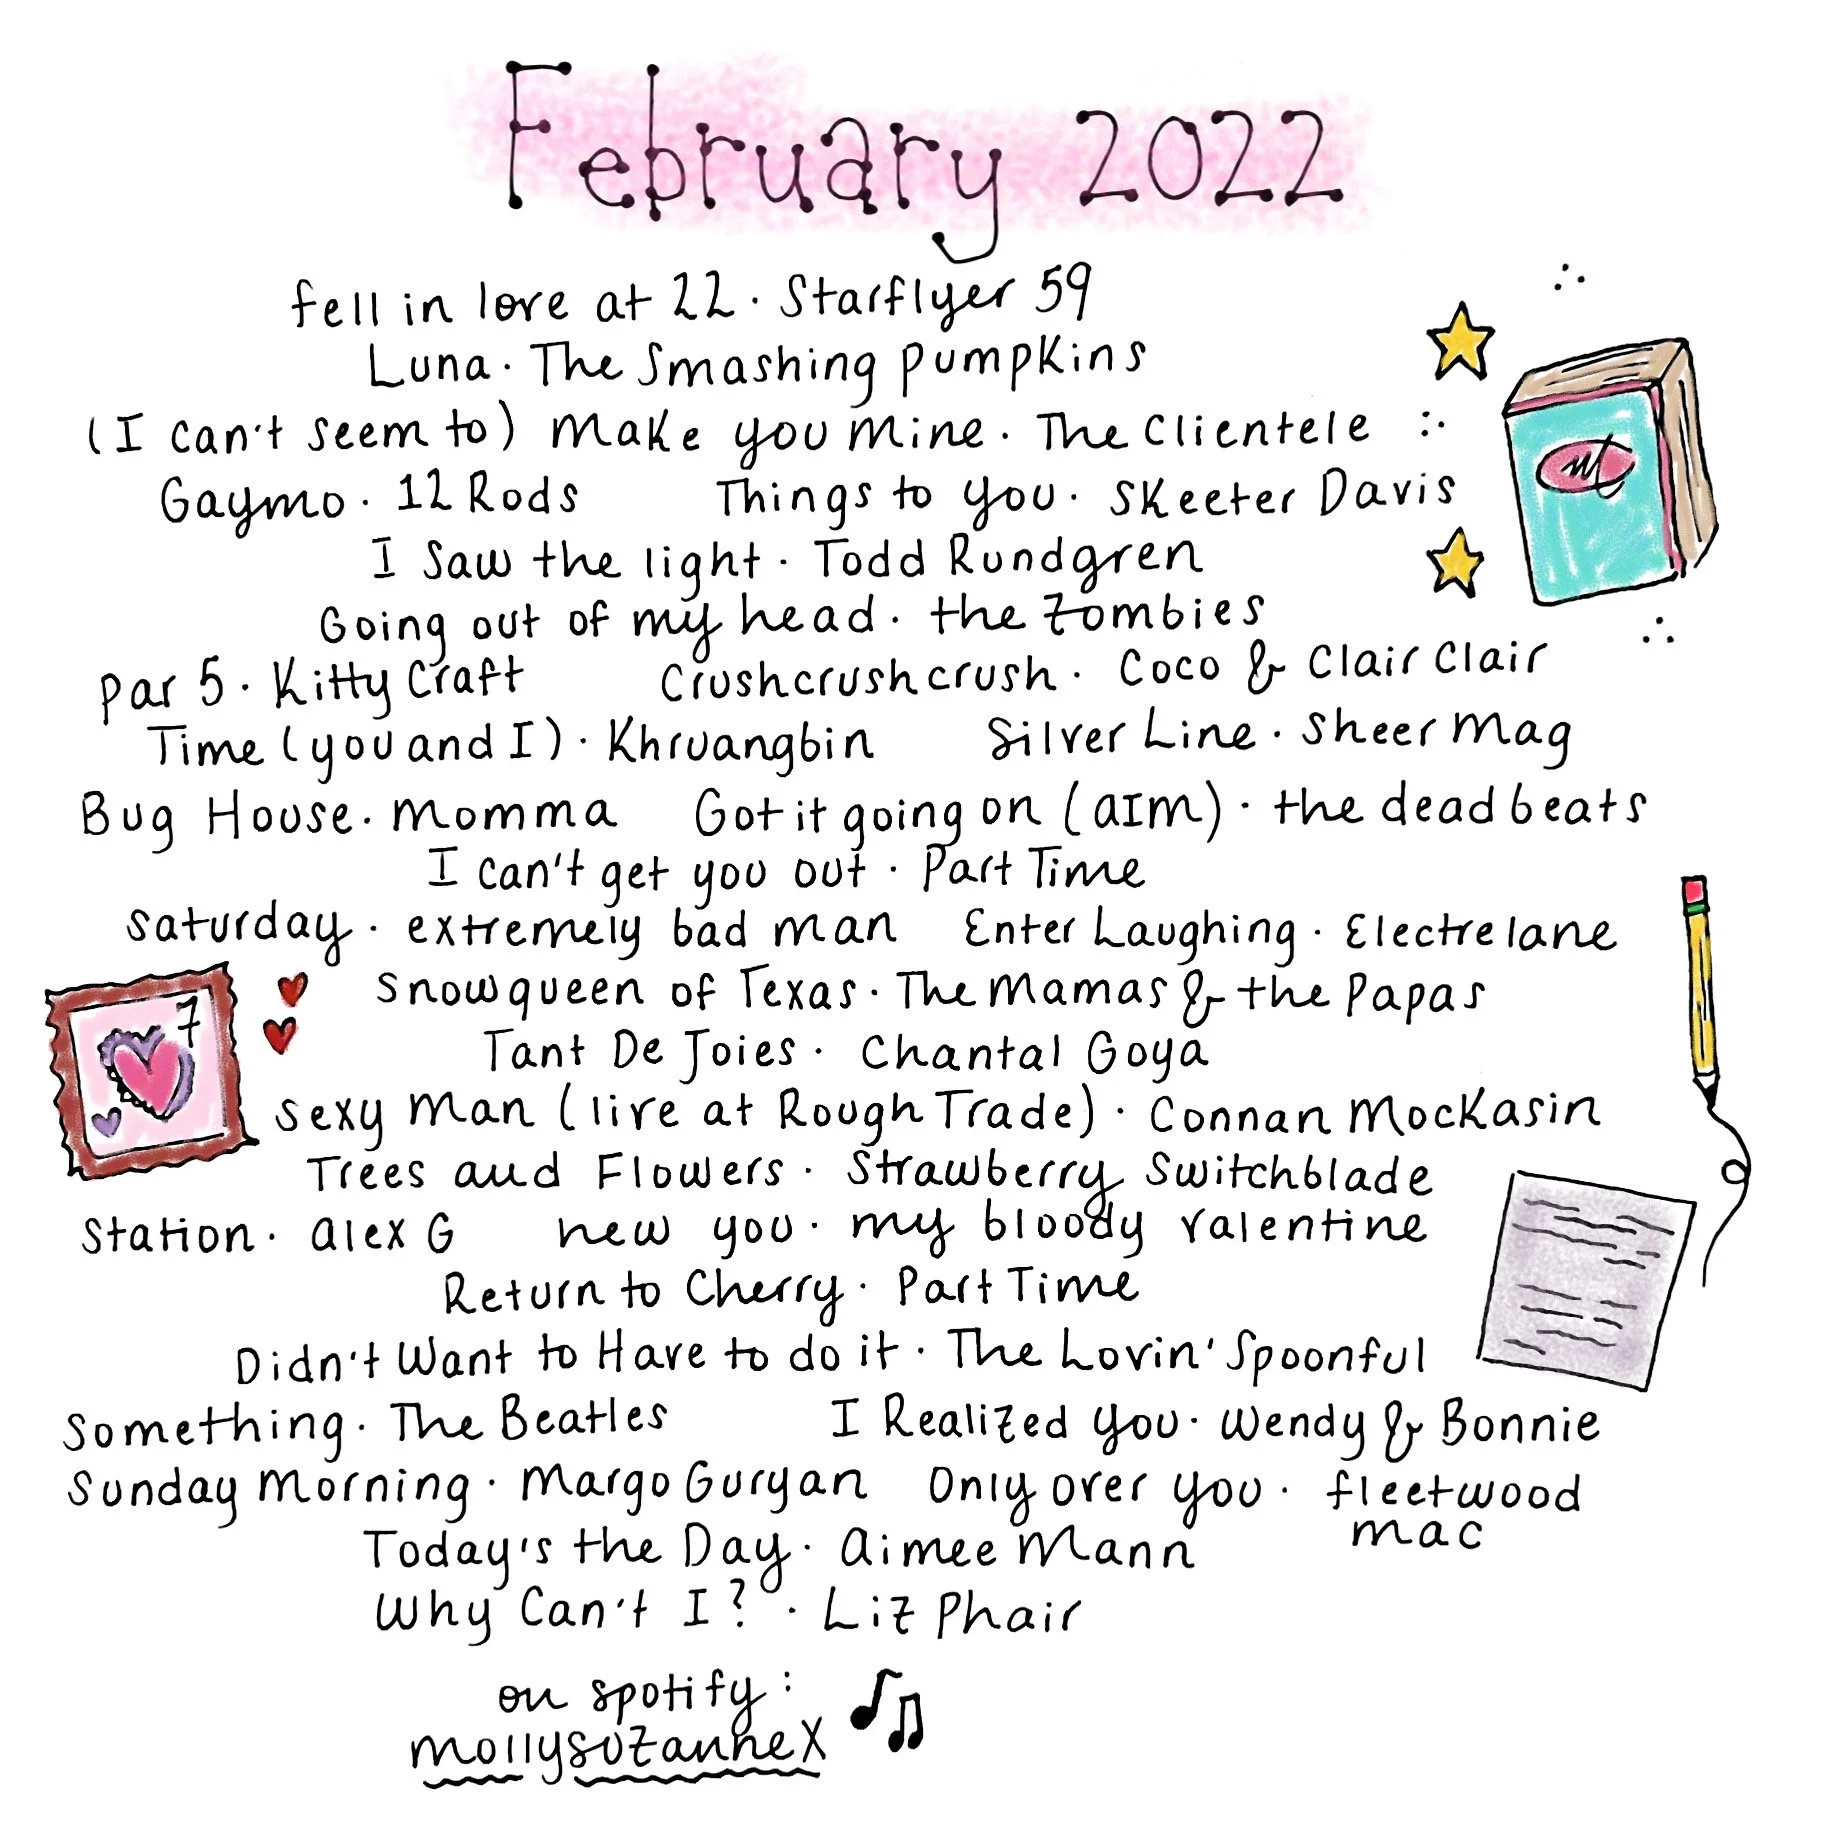 February 2022
fell in love at 22 · Starflyer 59
Luna · The Smashing Pumpkins
(I can't seem to) make you mine · The Clientele
Gaymo · 12 Rods Things to you · Skeeter Davis
I Saw the light · Todd Rundgren
Going out of my head · the Zombies
Par 5 · Kitty Craft Crushcrushcrush · Coco & Clair Clair
Time (you and I) · Khruangbin Silver Line · Sheer Mag
Bug House · Momma Got it going on (AIM) · the deadbeats
I can't get you out · Part Time
Saturday · extremely bad man Enter Laughing · Electrelane
Snowqueen of Texas · The Mamas & the Papas
7
Tant De Joies · Chantal Goya
Sexy Man (live at Rough Trade) · Connan Mockasin
Trees and Flowers · Strawberry Switchblade
Station · Alex G new you · my bloody valentine
Return to Cherry · Part Time
Didn't Want to Have to do it · The Lovin' Spoonful
Something · The Beatles I Realized You · Wendy & Bonnie
Sunday Morning · Margo Guryan Only over you · fleetwood
mac
Today's the Day · Aimee Mann
Why Can't I? · Liz Phair
on spotify:
mollysuzannex